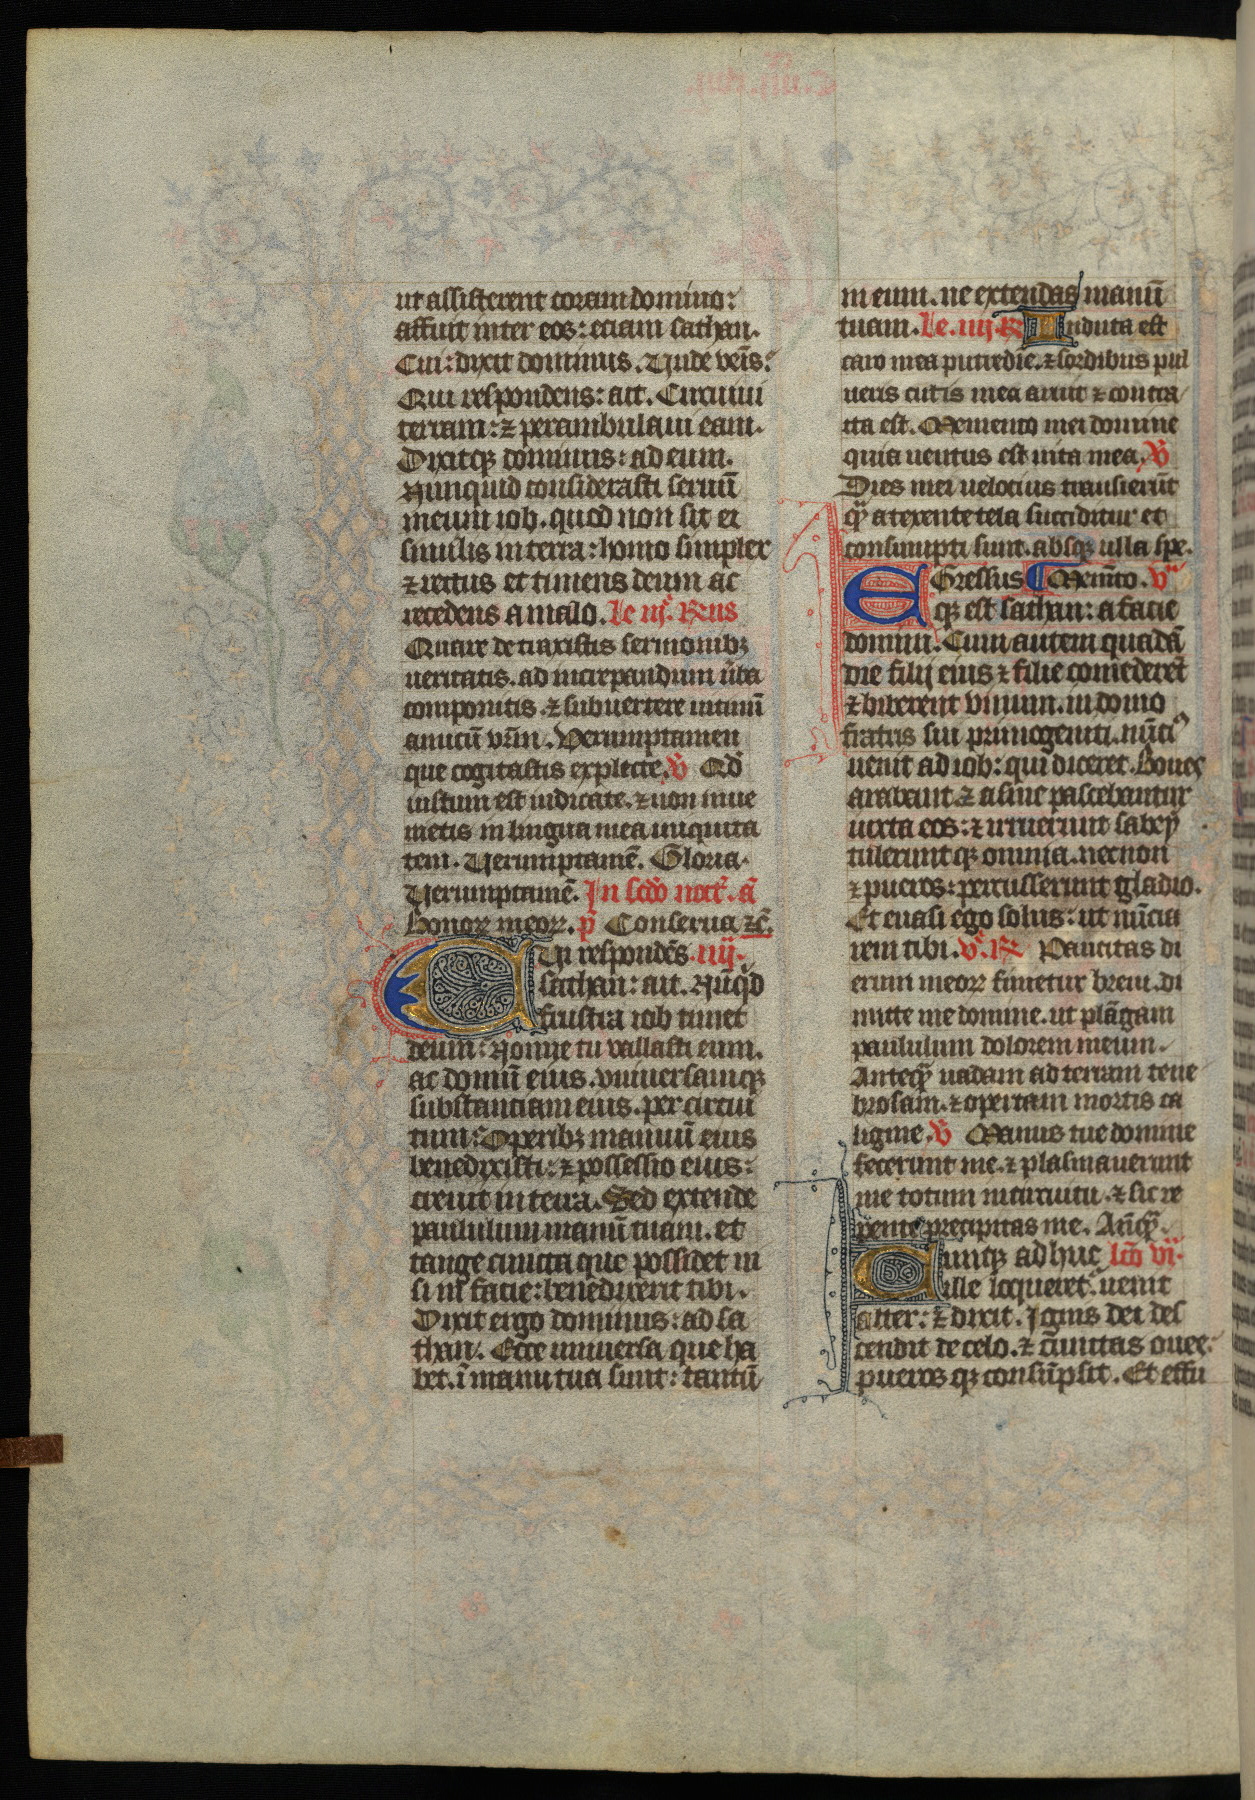 ut assisterent coram domino:
affuit inter eos: eciam sathan.
Cui: dixit dominus. Unde venis:
Qui respondens: ait. Circuiui
terram: ⁊ perambulaui eam.
Dixitqꝫ dominus: ad eum.
Nunquid considerasti seruū
meum iob. quod non sit ei
similis in terra: homo simplex
⁊ rectus et timens deum ac
recedens a malo. Le iij. Rus
Quare detraxistis sermonibꝫ
ueritatis. ad increpandum ūba
componitis. ⁊ subuertere nitimī
amicū vr̄m. Verumptamen
que cogitastis explecte. v̄ Qd̄
iustum est iudicate. ⁊ non inue
nietis in lingua mea iniquita
tem. Verumptamē. Gloria.
Verumptamē. In scd̄o noct̄. ā
Honoꝝ meoꝝ. p̄ Conserua ⁊c̄.
Cui respondēs. iiij.
sathan: ait. Nūqd̄
frustra iob timet
deum: Nonne tu vallasti eum.
ac domū eius. vniuersamqꝫ
substanciam eius. per circui
tum: Operibꝫ manuū eius
benedixisti: ⁊ possessio eius:
creuit in terra. Sed extende
paululum manū tuam. et
tange cuncta que possidet ni
si in facie: benedixerit tibi.
Dixit ergo dominus: ad sa
than. Ecce uniuersa que ha
bet. ī manu tua sunt: tantū
in eum. ne extendas manū
tuam. Le. iiij. R Induta est
caro mea putredīe. ⁊ sordibus pul
ueris cutis mea aruit ⁊ contra
cta est. Memento mei domine
quia uentus est uita mea. v̄
Dies mei uelocius transierūt
qꝫ̄ a texente tela succiditur et
consumpti sunt. absqꝫ ulla spe.
EGressus Memēto. v
qꝫ est sathan: a facie
domini. Cum autem quadā
die filij eius ⁊ filie comederet̄
⁊ biberent vinum. in domo
fratris sui primogeniti. nūci9
uenit ad iob: qui diceret. Boues
arabant. ⁊ asine pascebantur
iuxta eos: ⁊ irruerunt sabey
tulerunt qꝫ omnia. necnon
⁊ pueros: percusserunt gladio.
Et euasi ego solus: ut nūcia
rem tibi. v. R Paucitas di
erum meoꝝ finietur breui. di
mitte me domine. ut plāgam
paululum dolorem meum.
Anteqꝫ̄ uadam ad terram tene
brosam. ⁊ opertam mortis ca
ligine. v̄ Manus tue domine
fecerunt me. ⁊ plasmauerunt
me totum in circuitu. ⁊ sic re
pente precipitas me. Ān̄qꝫ̄.
Cumqꝫ adhuc lcō vi.
ille loqueret̄. uenit
alter: ⁊ dixit. Ignis dei des
cendit de celo. ⁊ cīuitas oues.
pueros qꝫ consūpsit. Et effu